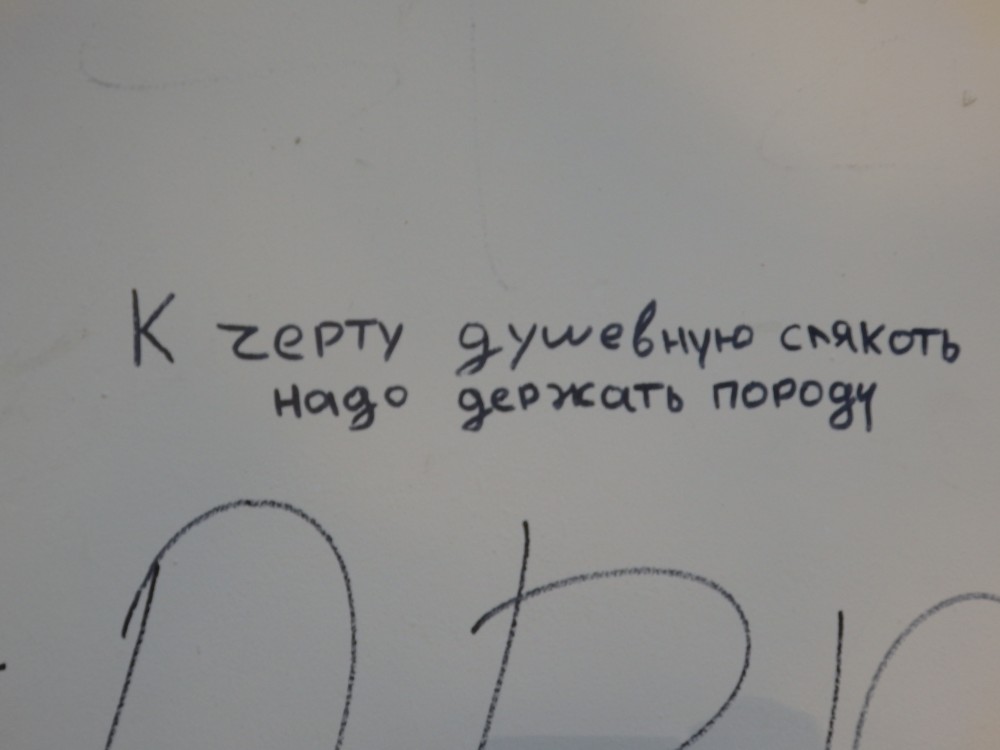 К черту душевную слякоть
надо держать породу